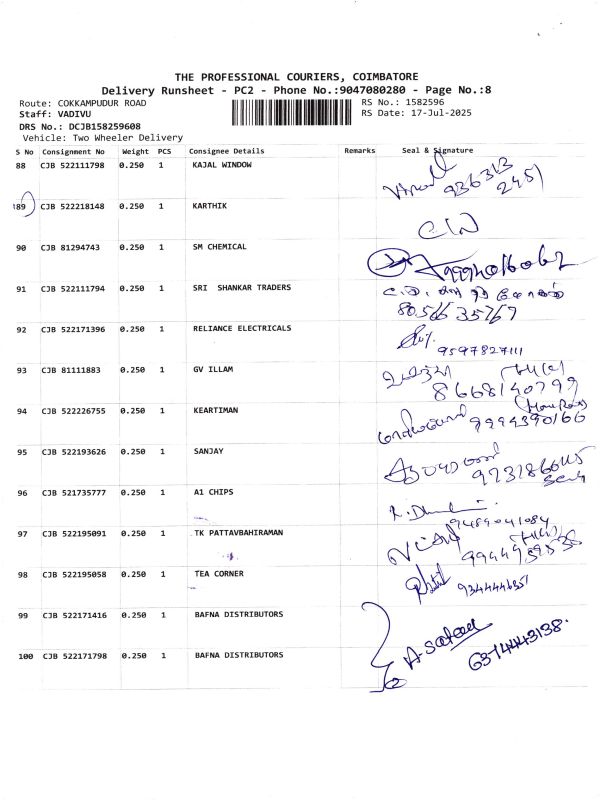 THE PROFESSIONAL COURIERS, COIMBATORE
Delivery Runsheet - PC2 - Phone No.:9047080280 - Page No.:8
Route: COKKAMPUDUR ROAD RS No.: 1582596
Staff: VADIVU RS Date: 17-Jul-2025
DRS No.: DCJB158259608
Vehicle: Two Wheeler Delivery
S No Consignment No Weight PCS Consignee Details Remarks Seal & Signature
88 CJB 522111798 0.250 1 KAJAL WINDOW
936313
2451
89 CJB 522218148 0.250 1 KARTHIK
90 CJB 81294743 0.250 1 SM CHEMICAL
91 CJB 522111794 0.250 1 SRI SHANKAR TRADERS
80566 35767
92 CJB 522171396 0.250 1 RELIANCE ELECTRICALS
9597827111
93 CJB 81111883 0.250 1 GV ILLAM
8668140799
94 CJB 522226755 0.250 1 KEARTIMAN
9994390166
95 CJB 522193626 0.250 1 SANJAY
96 CJB 521735777 0.250 1 A1 CHIPS
9489041084
97 CJB 522195091 0.250 1 TK PATTAVBAHIRAMAN
98 CJB 522195058 0.250 1 TEA CORNER
99 CJB 522171416 0.250 1 BAFNA DISTRIBUTORS
100 CJB 522171798 0.250 1 BAFNA DISTRIBUTORS
6374443138.